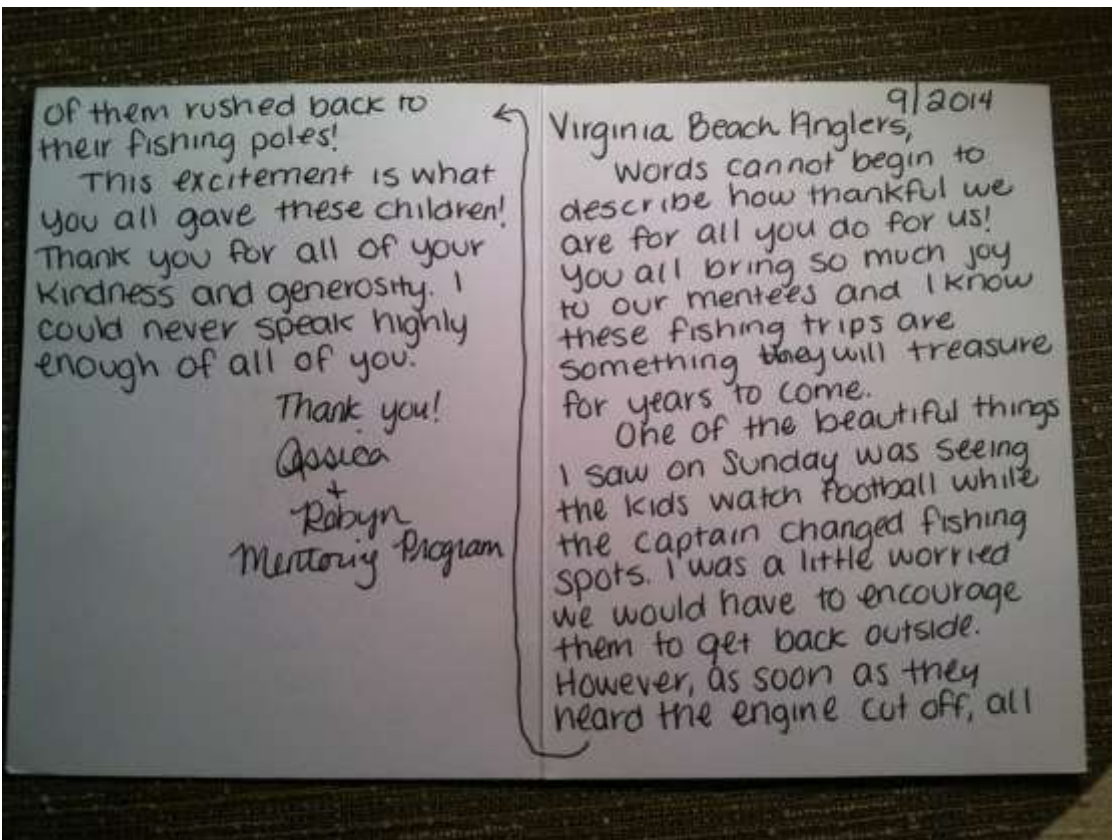 9/2014
Virginia Beach Anglers,
Words cannot begin to
describe how thankful we
are for all you do for us!
You all bring so much joy
to our mentees and I know
these fishing trips are
something they will treasure
for years to come.
One of the beautiful things
I saw on Sunday was seeing
the kids watch football while
the captain changed fishing
spots. I was a little worried
we would have to encourage
them to get back outside.
However, as soon as they
heard the engine cut off, all
of them rushed back to
their fishing poles!
This excitement is what
you all gave these children!
Thank you for all of your
kindness and generosity. I
could never speak highly
enough of all of you.
Thank you!
+
Robyn
Mentoring Program